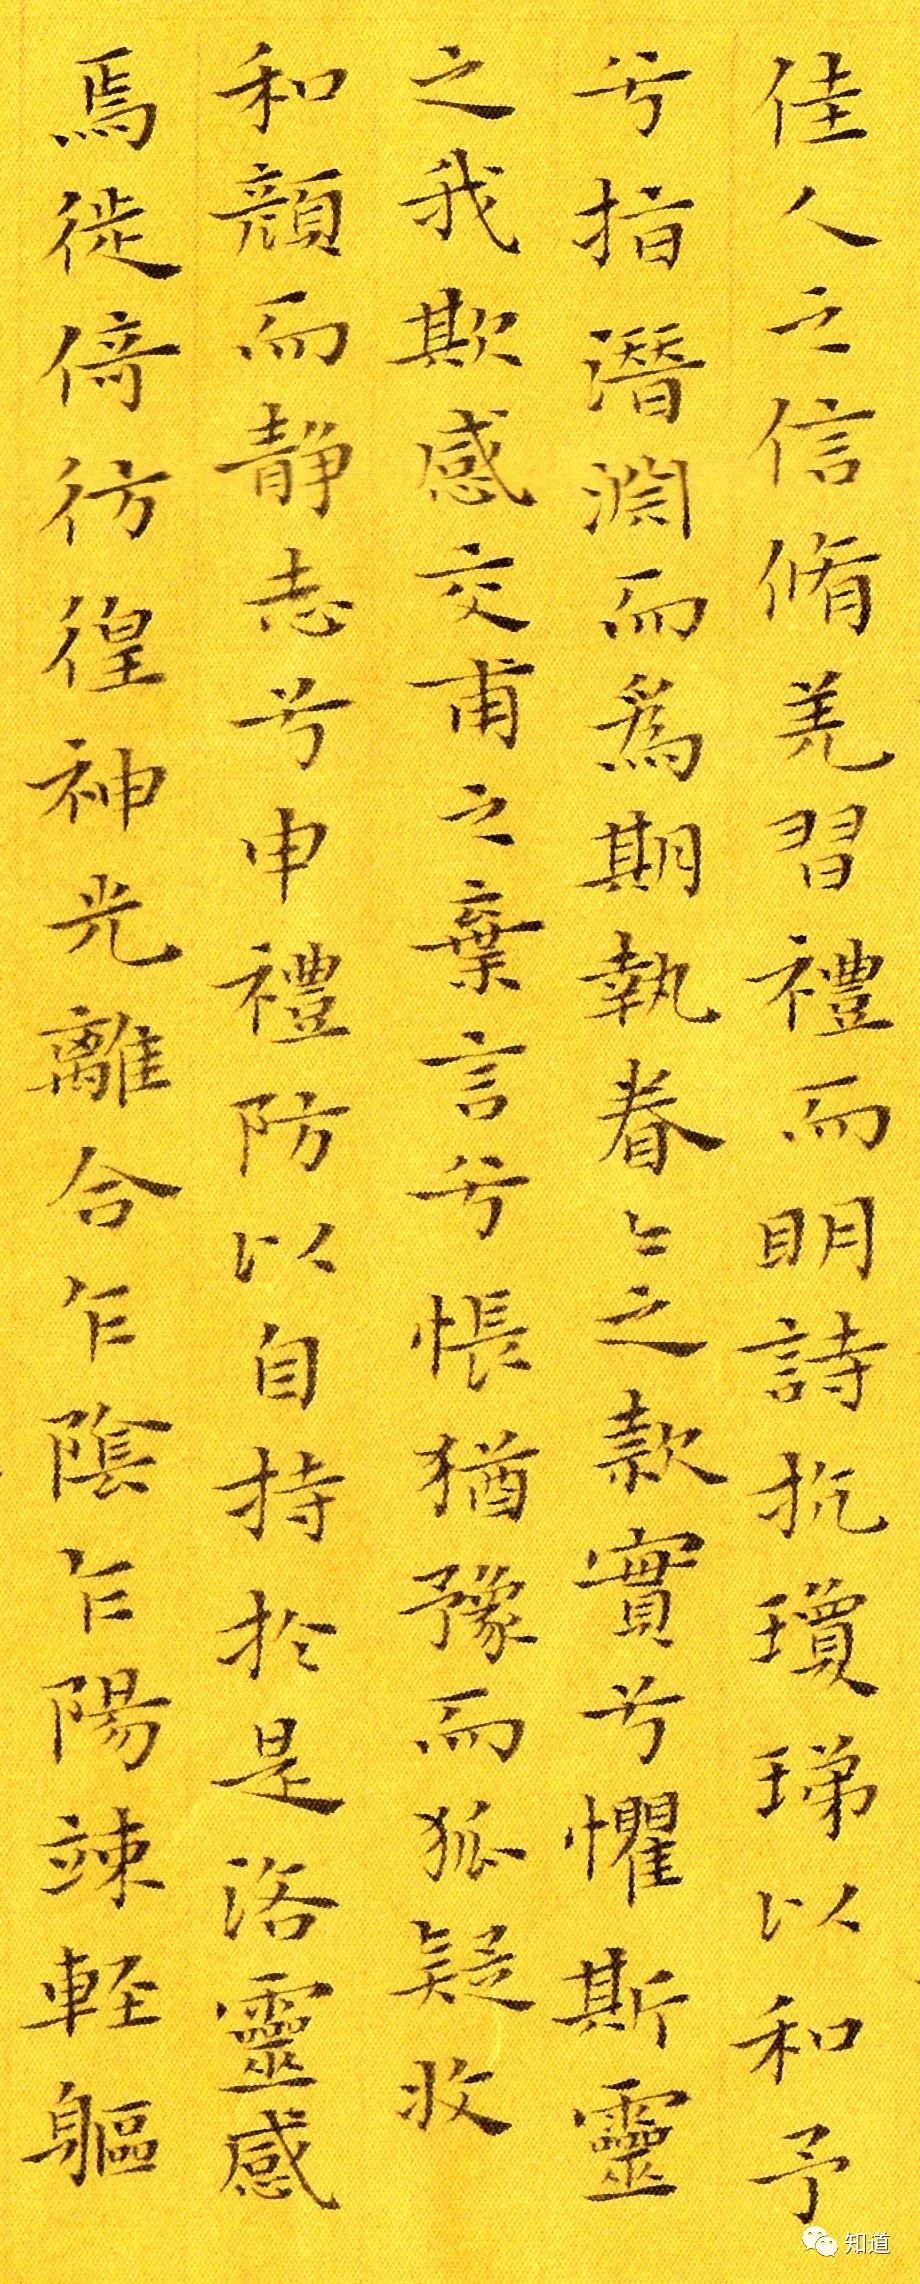 佳人之信脩羌習禮而明詩抗瓊珶以和予
兮指潛淵而為期執眷〻之款實兮懼斯靈
之我欺感交甫之棄言兮悵猶豫而狐疑收
和顏而静志兮申禮防以自持於是洛靈感
焉徙倚彷徨神光離合乍陰乍陽竦輕軀
知道